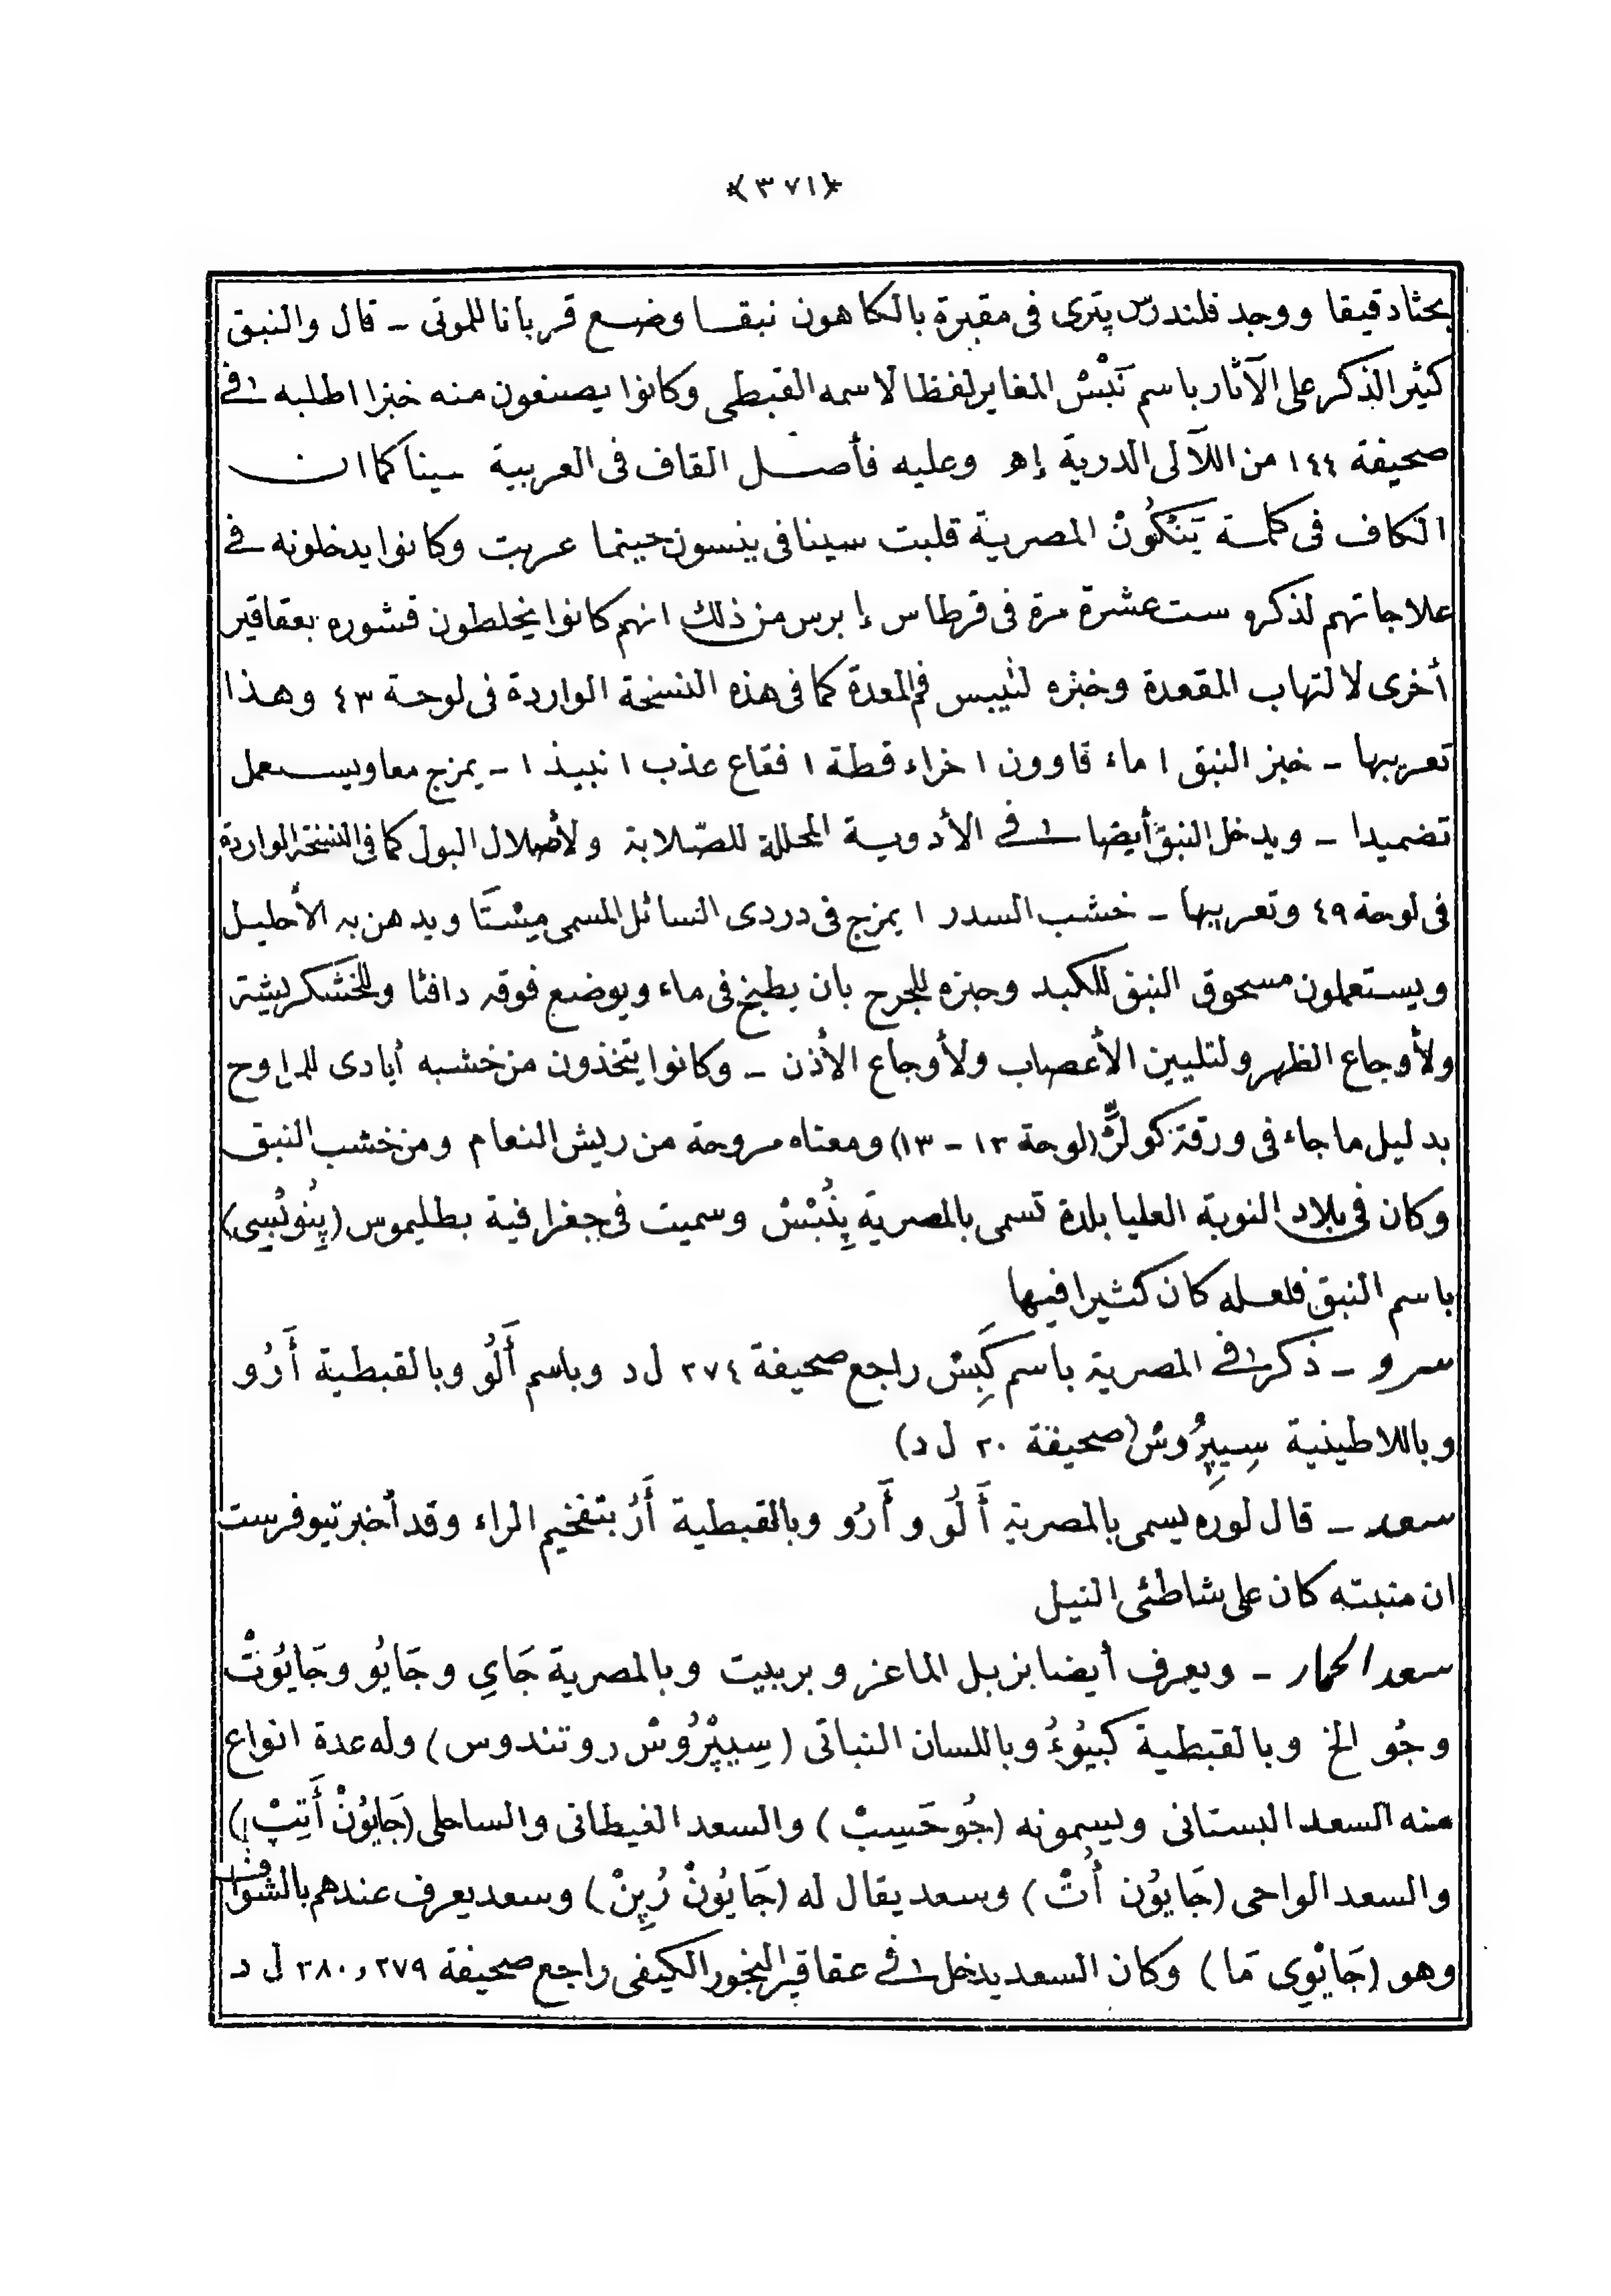 ﴿٣٧١﴾
بحثا دقيقا ووجد فلندرس پترى فى مقبرة بالكاهون نبقا وضع قربانا للموتى – قال والنبق
كثير الذكر على الآثار باسم نَبْسْ المغاير لفظا لاسمه القبطى وكانوا يصنعون منه خبزا اطلبه فى
صحيفة ١٤٤ من اللآلى الدرية إهـ وعليه فأصل القاف فى العربية سينا كما ان
الكاف فى كلمة يَنْكُونْ المصرية قلبت سينا فى ينسون حينما عربت وكانوا يدخلونه فى
علاجاتهم لذكره ست عشرة مرة فى قرطاس إبرس من ذلك انهم كانوا يخلطون قشوره بعقاقير
أخرى لالتهاب المقعدة وخبزه لتيبس فم المعدة كما فى هذه النسخة الواردة فى لوحة ٤٣ وهذا
تعريبها – خبز النبق ١ ماء قاوون ١ خراء قطة ١ فقاع عذب ١ نبيذ ١ – يمزج معا ويستعمل
تضميدا – ويدخل النبق أيضا فى الأدوية المحللة للصّلابة ولأصلال البول كما فى النسخة الواردة
فى لوحة ٤٩ وتعريبها – خشب السدر ١ يمزج فى دردى السائل المسمى مِسْتَا ويدهن به الأحليل
ويستعملون مسحوق النبق للكبد وخبزه للجرح بان يطبخ فى ماء ويوضع فوقه دافئا وللخشكريشة
ولأوجاع الظهر ولتليين الأعصاب ولأوجاع الأذن – وكانوا يتخذون من خشبه أيادى للمراوح
بدليل ما جاء فى ورقة كولر (لوحة ١٣ – ١٣) ومعناه مروحة من ريش النعام ومن خشب النبق
وكان فى بلاد النوبة العليا بلدة تسمى بالمصرية پِنُبْسْ وسميت فى جغرافية بطليموس (پِنُوبْسِى)
باسم النبق فلعله كان كثيرا فيها
سرو – ذكر فى المصرية باسم كَبِسْ راجع صحيفة ٢٧٤ ل د وباسم أَلُو وبالقبطية أَرُو
وباللاطينية سِيپِرُوسْ (صحيفة ٢٠ ل د)
سعد – قال لوره يسمى بالمصرية أَلُو و أَرُو وبالقبطية أَرُ بتفخيم الراء وقد أخبر تيوفرست
ان منبته كان على شاطئى النيل
سعد الحمار – ويعرف أيضا بزبل الماعز و بربيت وبالمصرية جَاىِ و جَايُو وجَايُونْ
وجُو الخ وبالقبطية كَبيُوءُ وباللسان النباتى (سِيپْرُوسْ روتندوس) وله عدة انواع
منه السعد البستانى ويسمونه (جُو حَسِبْ) والسعد الغيطانى والساحلى (جَايُونْ أَتِبْ)
والسعد الواحى (جَايُون أُتْ) وسعد يقال له (جَايُونْ رُپِنْ) وسعد يعرف عندهم بالشواف
وهو (جَايْوِى مَا) وكان السعد يدخل فى عقاقير البخور الكيفى راجع صحيفة ٢٧٩ و٣٨٠ ل د